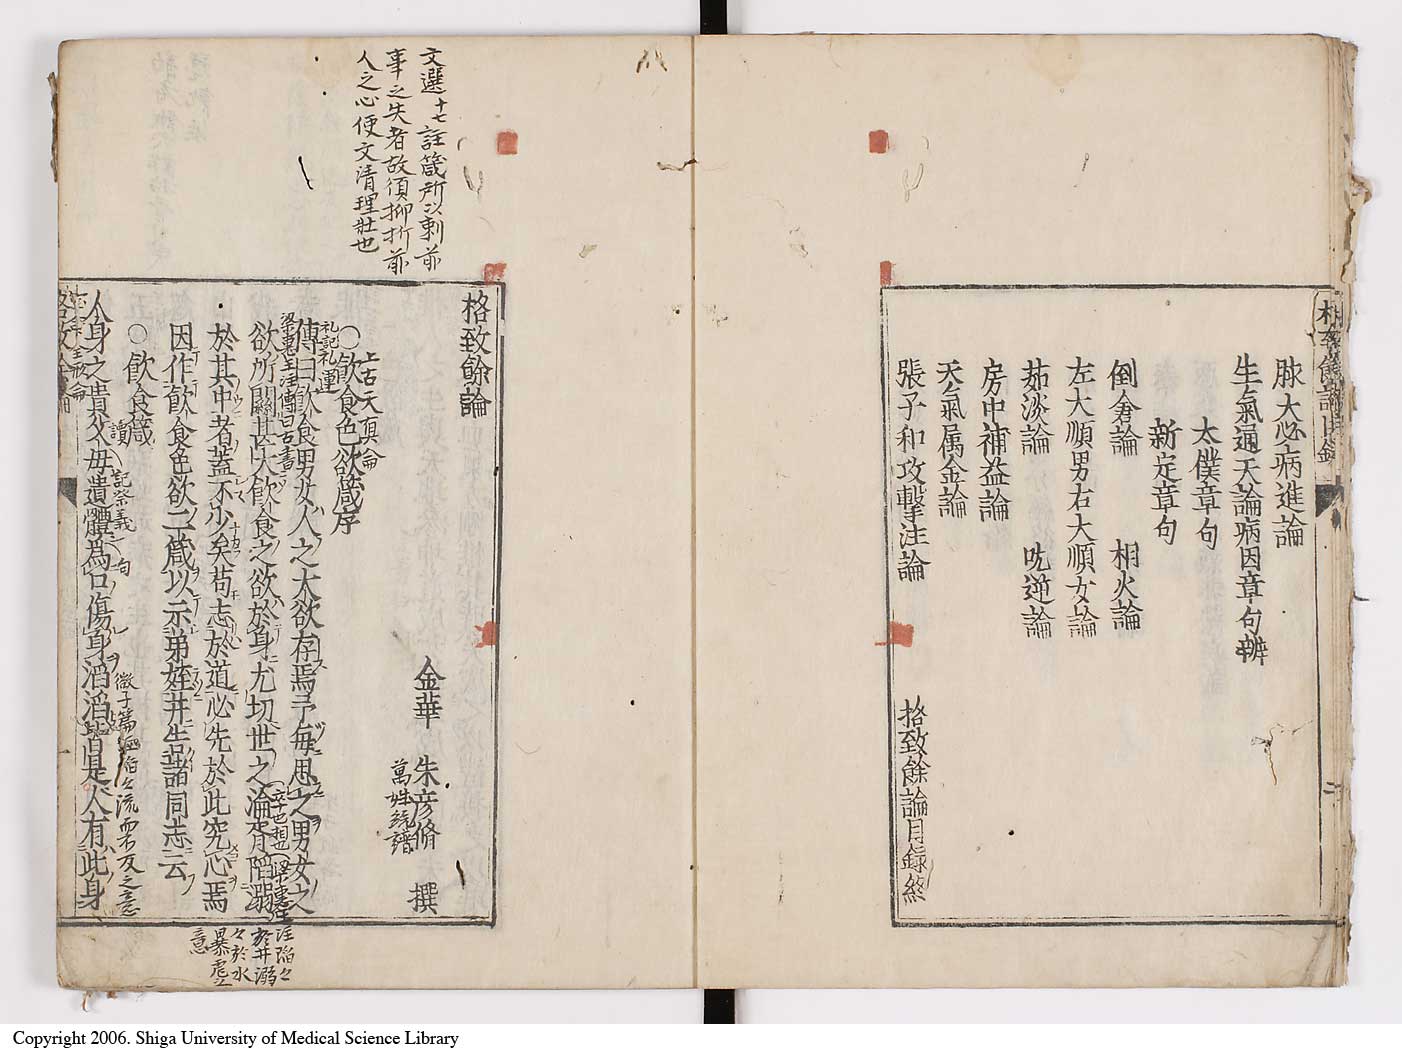 脉大必病進論
生氣通天論病因章句辨
太僕章句
新定章句
倒倉論 相火論
左大順男右大順女論
茹淡論 吃逆論
房中補益論
天氣属金論
張子和攻擊注論 格致餘論目録終
文選十七註箴所以刺前
事之失者故須抑折前
人之心使文清理壯也
格致餘論
金華 朱彦脩 撰
萬姓統譜
上古天真論
○飲食色欲箴序
礼記礼運
傳曰飲食男女人之大欲存焉予毎思之男女之
欲所關甚大飲食之欲於身尤切世之淪胥陷溺
於其中者蓋不少矣苟志於道必先於此究心焉
因作飲食色欲二箴以示弟姪并告諸同志云
○飲食箴
人身之貴父母遺體為口傷身滔滔皆是人有此身
Copyright 2006. Shiga University of Medical Science Library